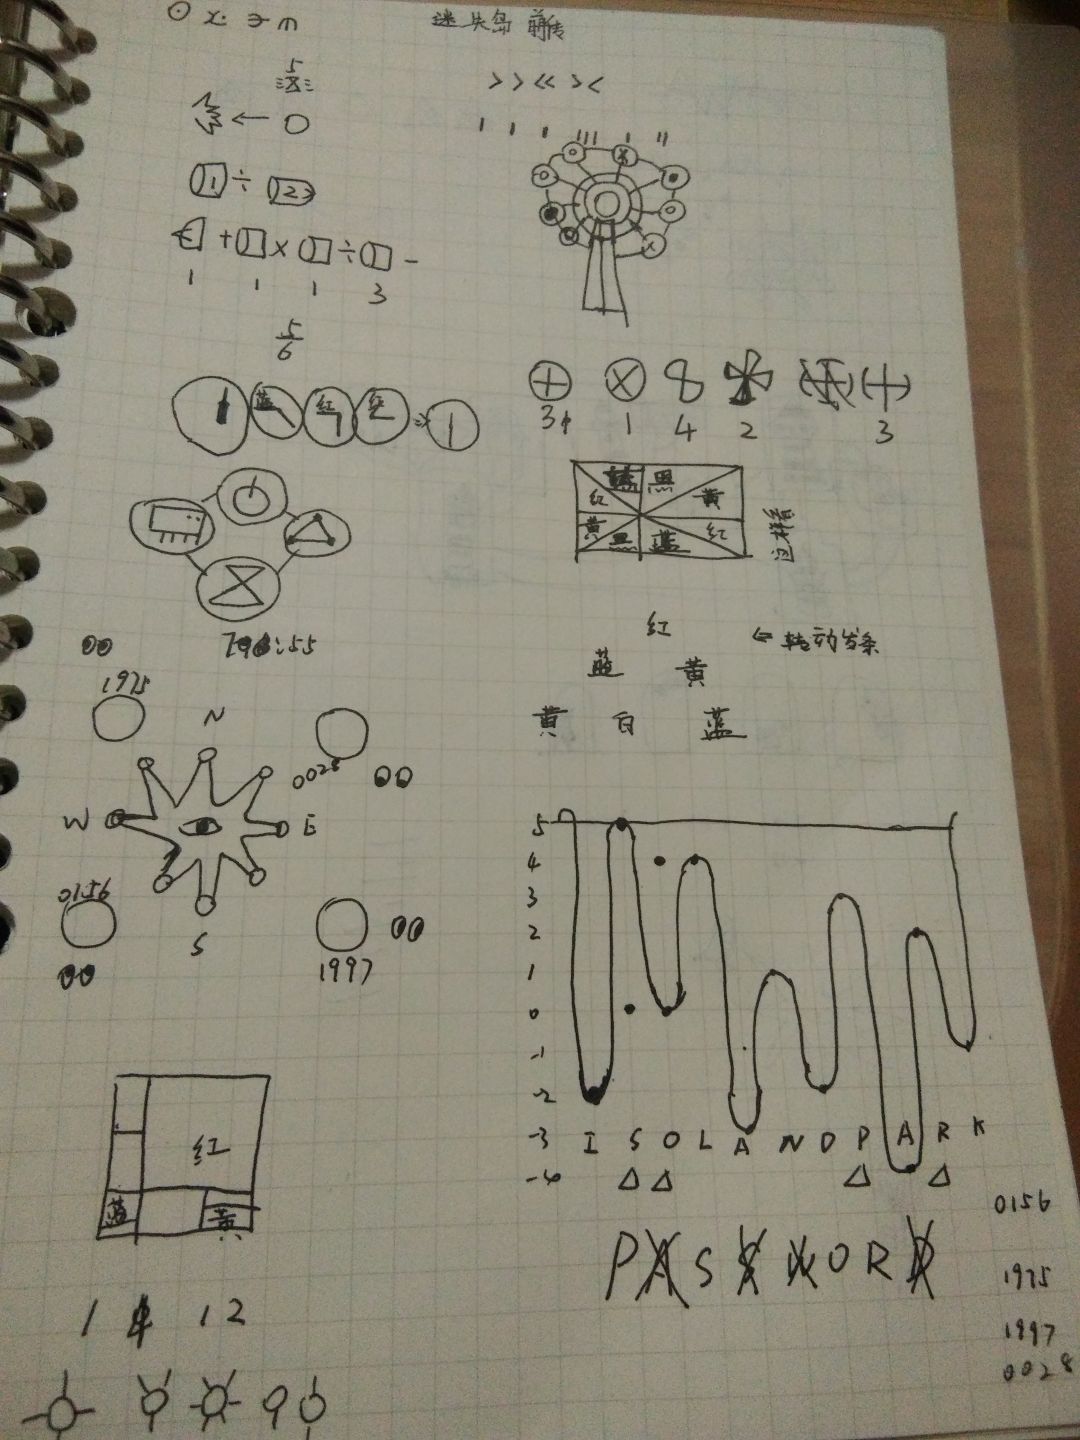 迷失岛 前传
5
8
> > << > <
1 1 1 111 1 11
1 ÷ 2
+ × ÷ -
1 1 1 3
5
6
蓝 红 红 1
3 1 4 2 3
蓝 黑
红 黄
黄 红
黑 蓝
这样看
红
蓝 黄
黄 白 蓝
← 转动发条
:55
1975
N
0028
W E
0156
S
1997
5
4
3
2
1
0
-1
-2
-3 I S O L A N D P A R K
-4 △ △ △ △
红
蓝 黄
PASSWORD
0156
1975
1997
0028
1 4 1 2